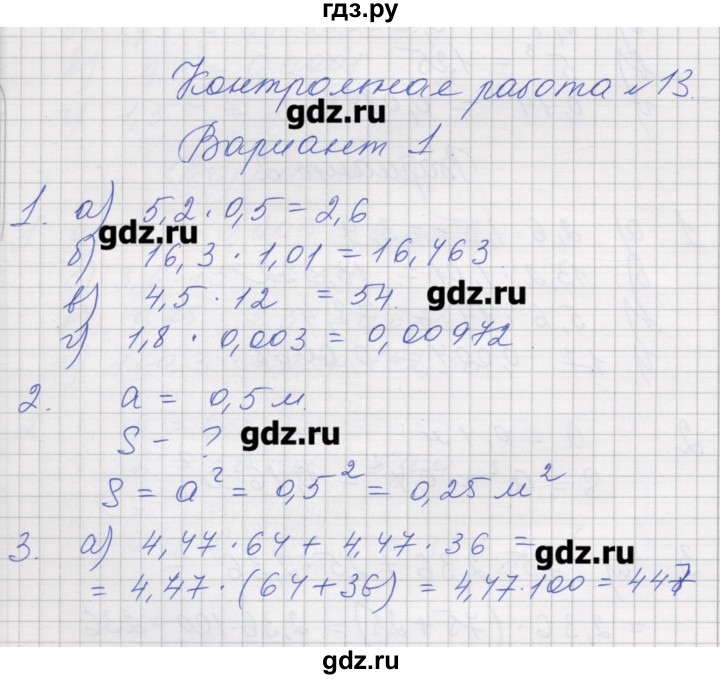 гдз.ру
Контрольная работа №13.
gdz.ru
Вариант 1.
1. а) 5,2 · 0,5 = 2,6
gdz.ru
б) 16,3 · 1,01 = 16,463
в) 4,5 · 12 = 54.
gdz.ru
г) 1,8 · 0,003 = 0,00972
2. a = 0,5 м.
S - ?
gdz.ru
S = a² = 0,5² = 0,25 м²
3. а) 4,47 · 64 + 4,47 · 36 =
gdz.ru
= 4,47 · (64 + 36) = 4,47 · 100 = 447
gdz.ru